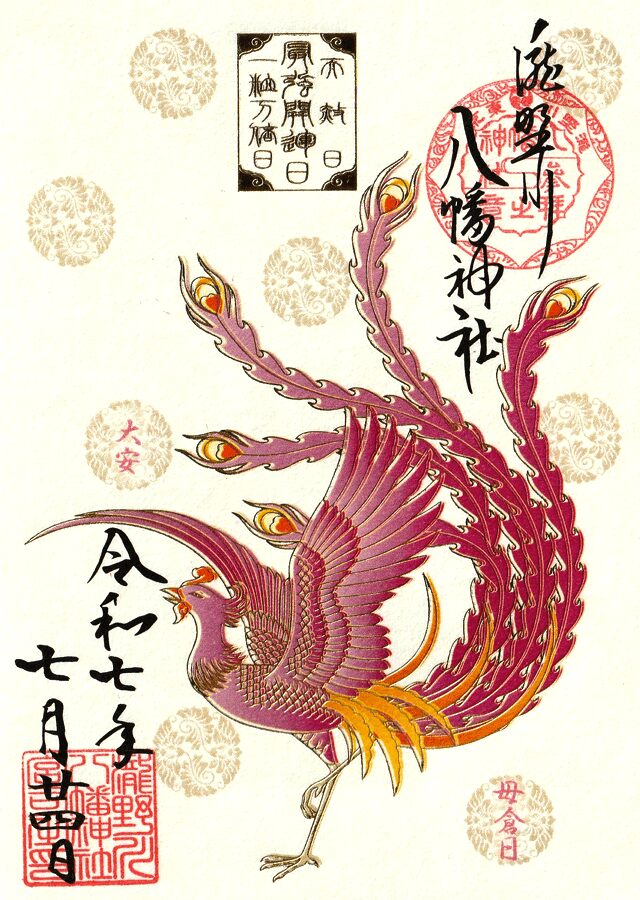 瀧野川
八幡神社
天赦日
最強開運日
一粒万倍日
大安
令和七年
七月廿四日
瀧野川
八幡神社
母倉日